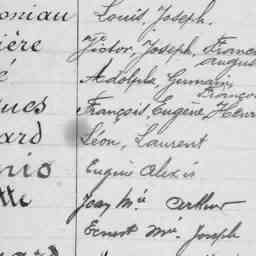 oniau Louis, Joseph,
ière Victor, Joseph, Franço
August
é Adolphe, Germain,
Franço
ues François, Eugène, Henri
ard Léon, Laurent
nio Eugène Alexis
tte Jean Mie Arthur
Ernest Mie Joseph